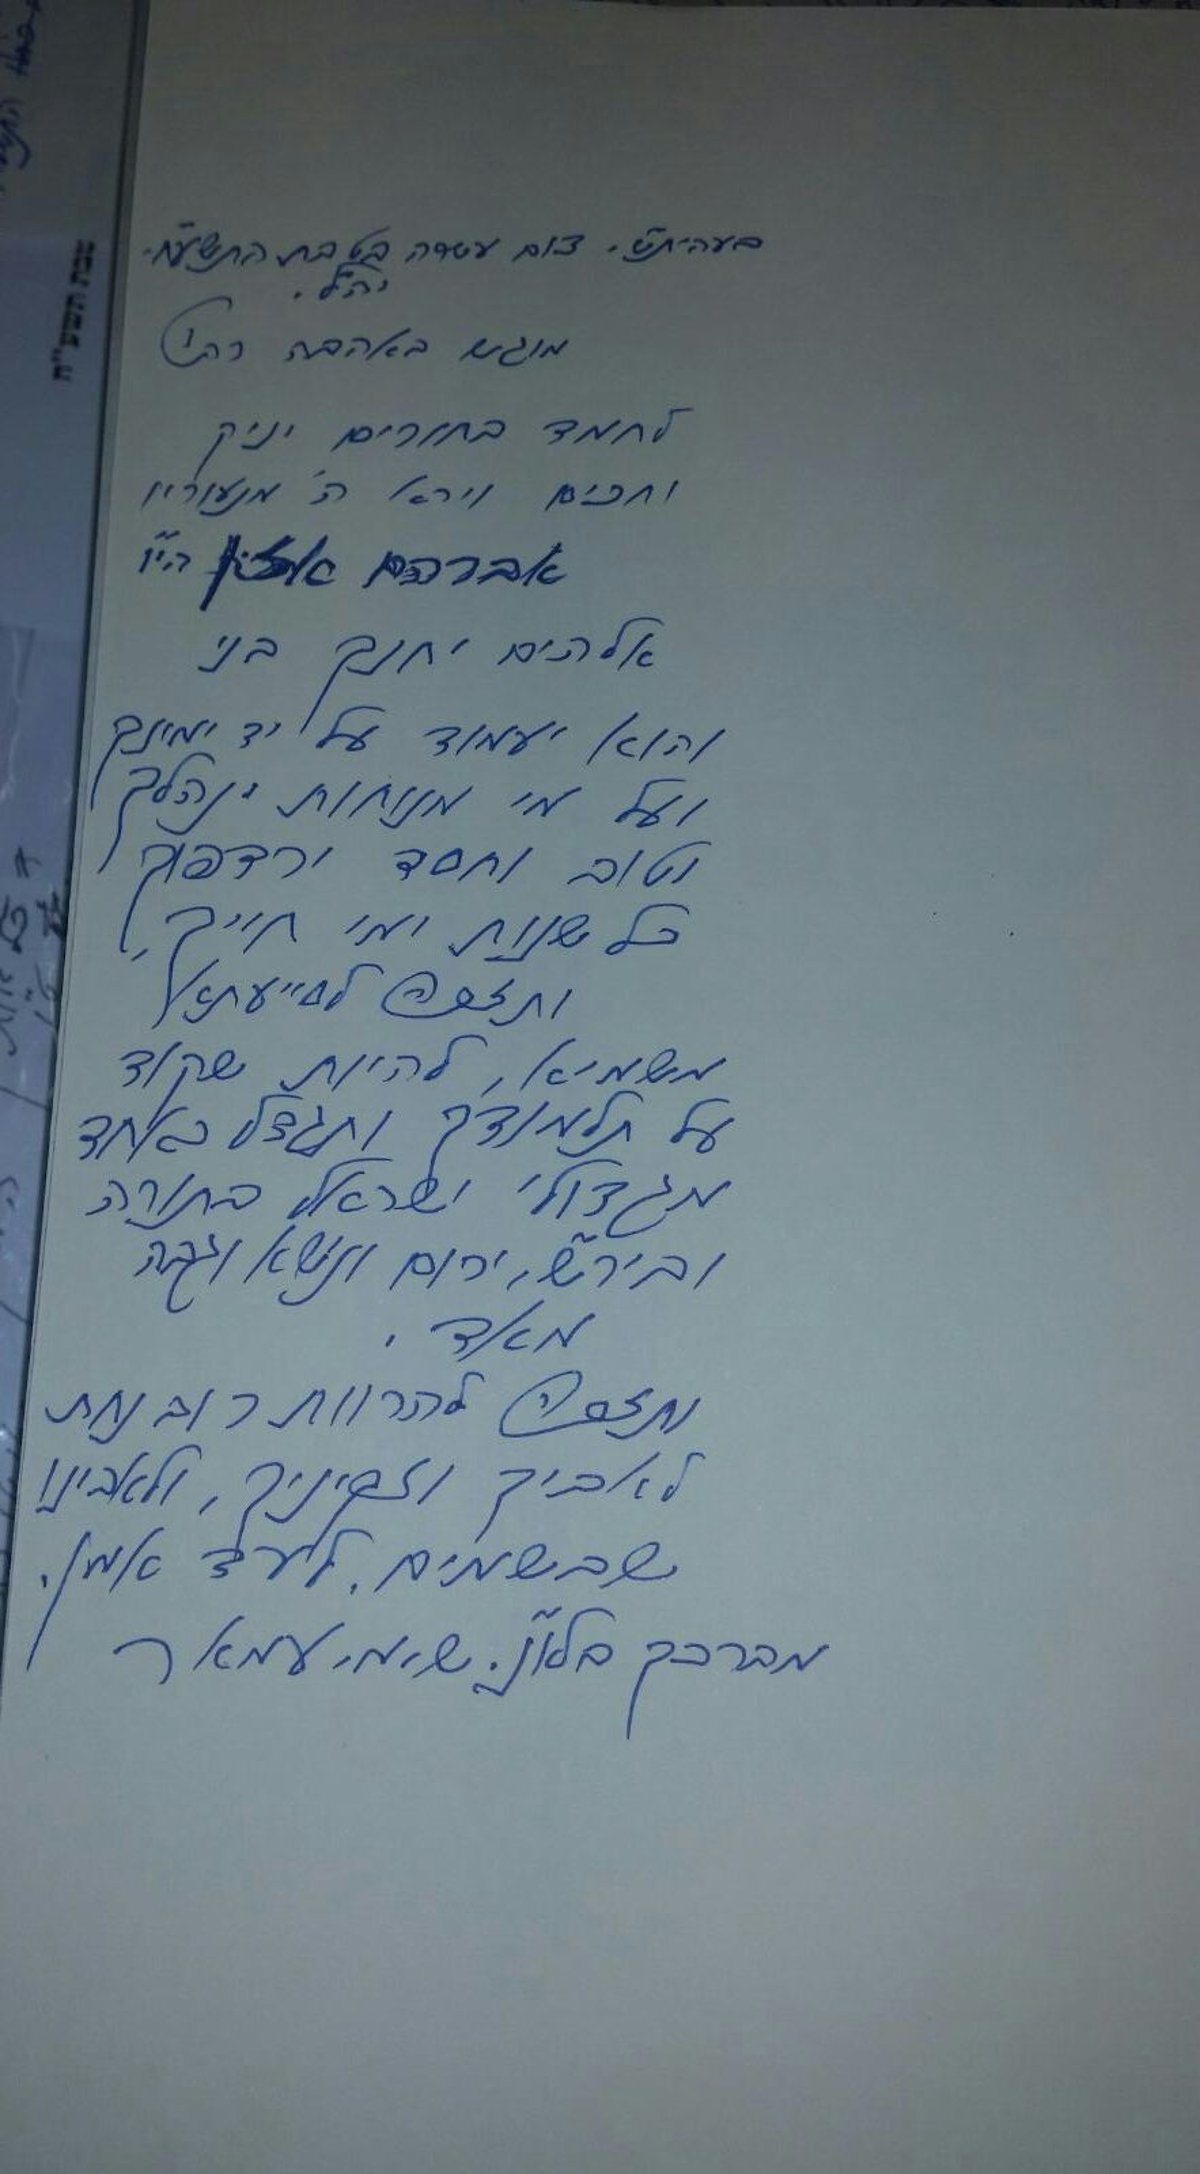 בעהית"ש. צום עשרה בטבת התשע"ח.
יה"ל.
מוגש באהבה רבי
לחמד בחורים יניק
וחכים וירא ה' מנעוריו
אברהם הי"ו
אלהים יחנך בני
והוא יעמוד על יד ימינך
ועל מי מנוחות ינהלך
וטוב וחסד ירדפוך
כל שנות ימי חייך,
ותזכה לסייעתא
משמיא, להיות שקוד
על תלמודך ותגדל כאחד
מגדולי ישראל בתורה
ובירא"ש, ירום ונשא וגבה
מאד.
ותזכה להרוות רוב נחת
לאביך וזקיניך, ולאבינו
שבשמים. לעד אמן.
מברכך בלו"נ. שימי עמאר
שבת תשע"ח